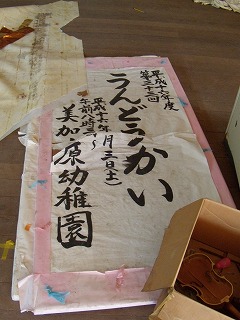 平成十六年度
第三十三回
うんどうかい
平成十六年 月三日(土)
午前八時三十~
美加原幼稚園